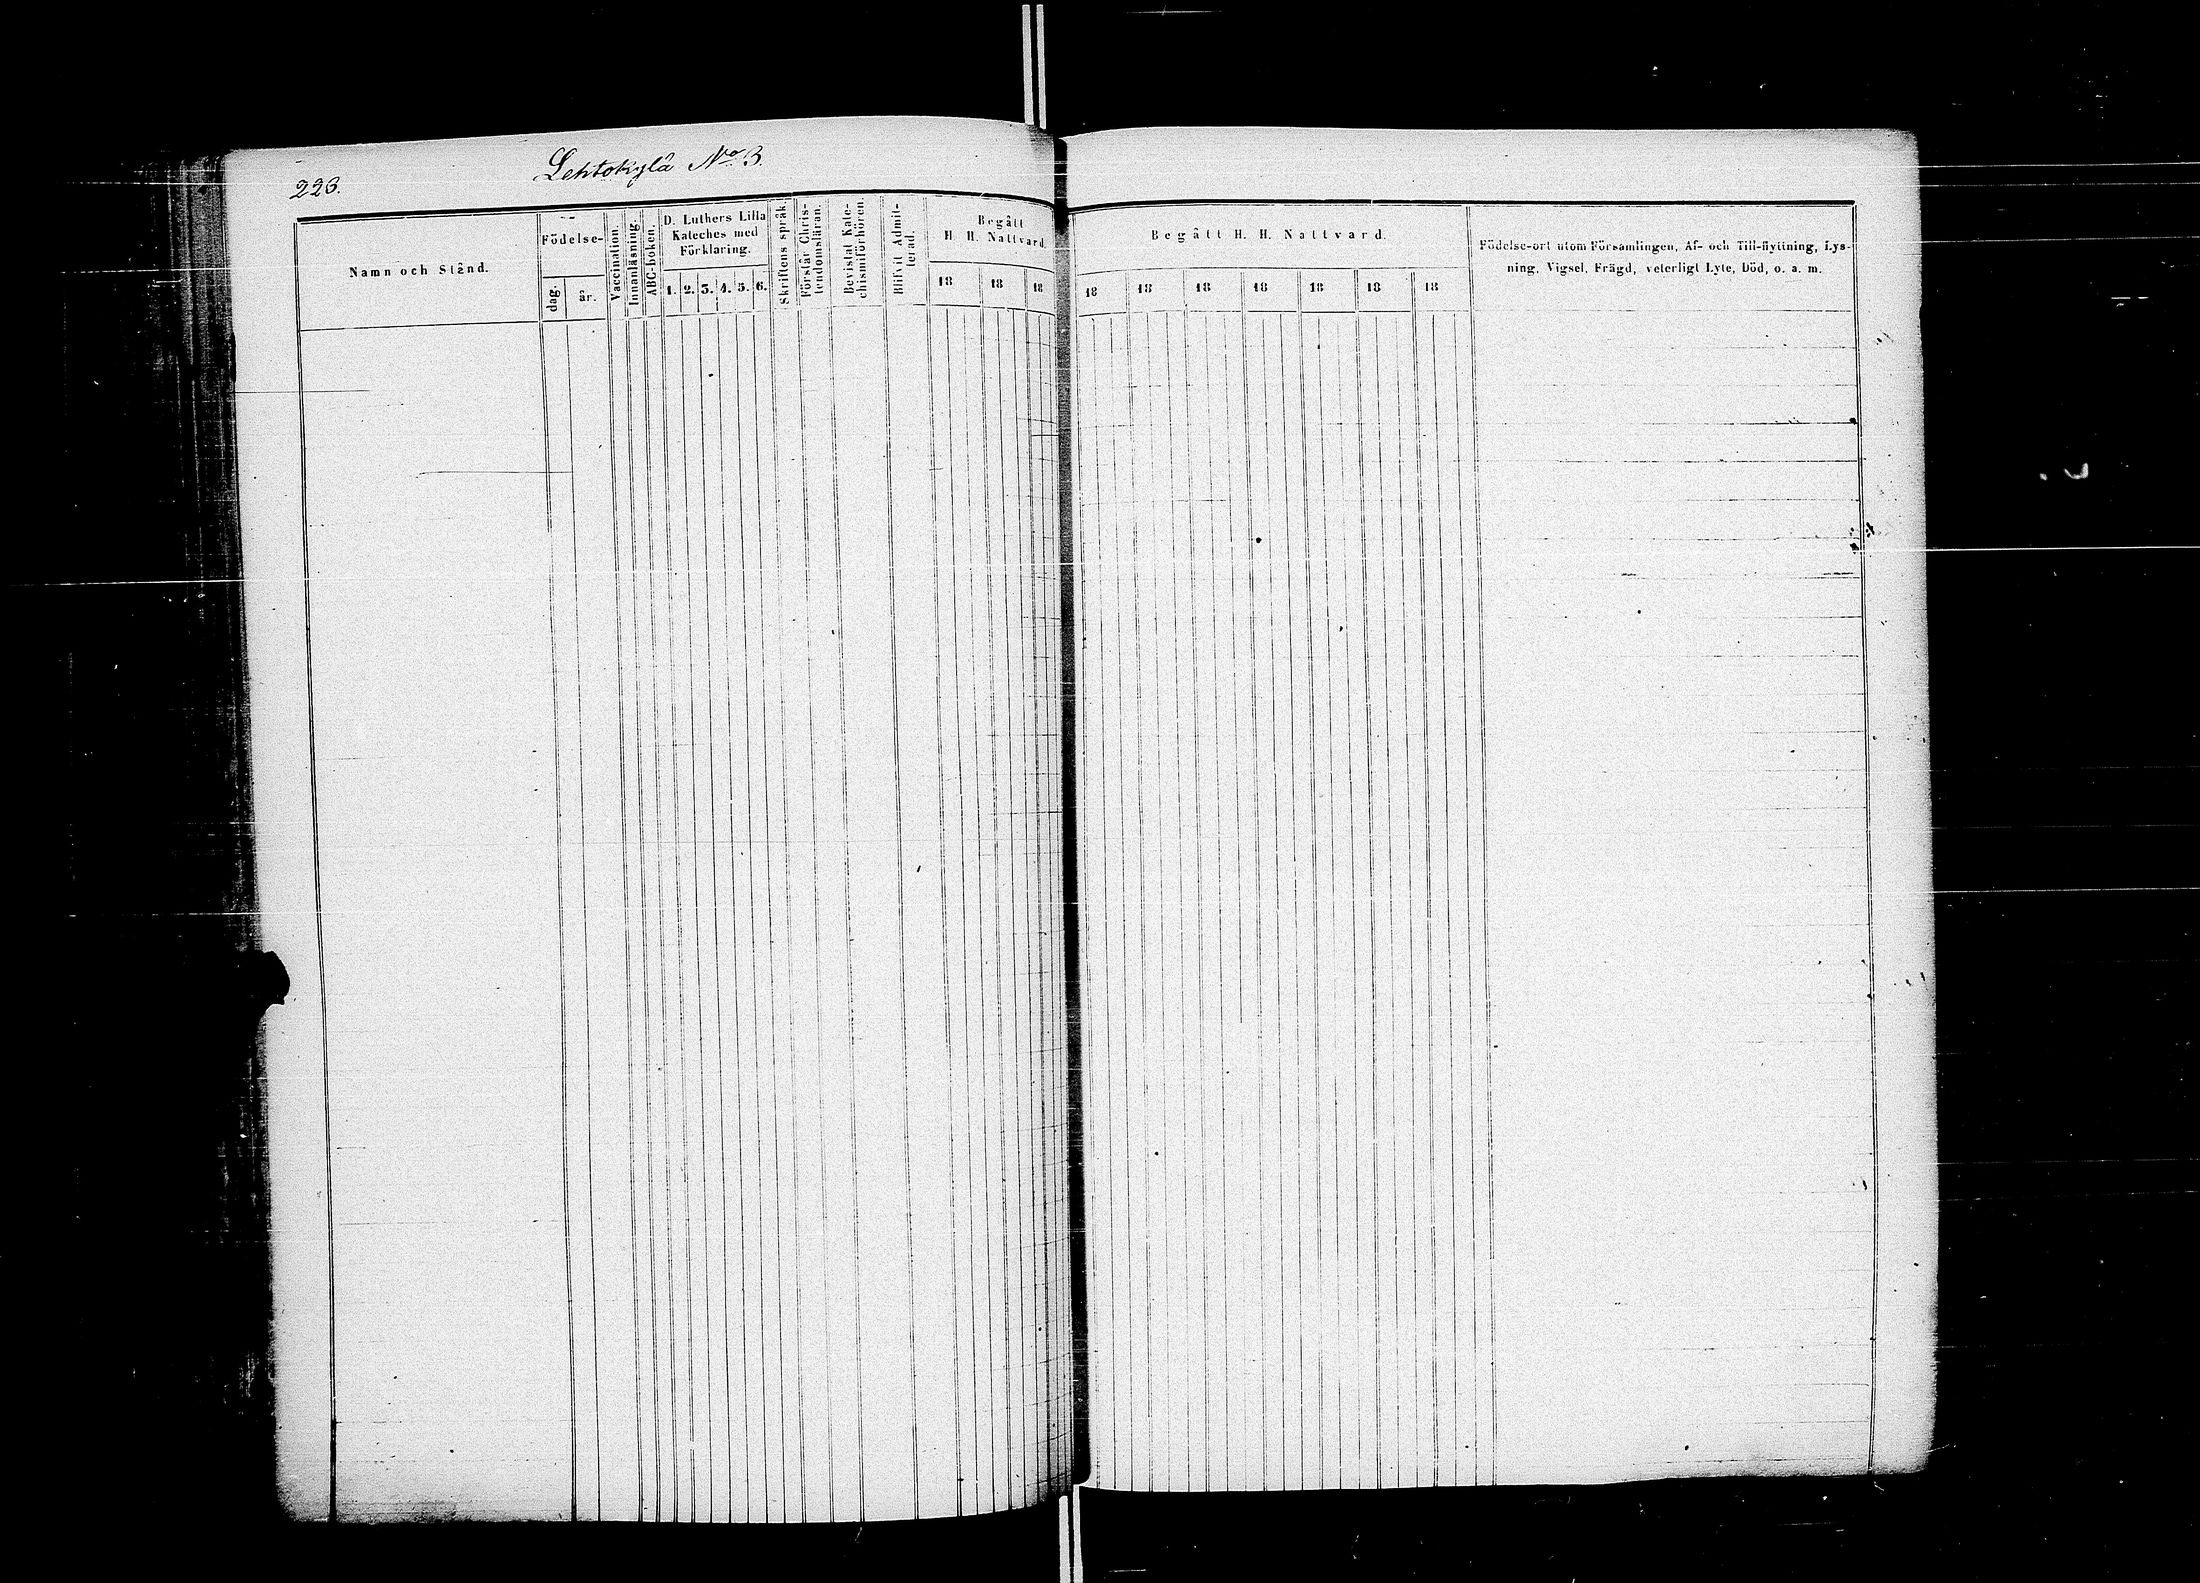 223.
Lehtokylä No 3.
Namn och Stånd.
Födelse-
dag.
år.
Vaccination.
Innanläsning.
ABC-boken.
D. Luthers Lilla
Kateches med
Förklaring.
1. 2. 3. 4. 5. 6.
Skriftens språk.
Förstår Chris-
tendomsläran.
Bevistat Kate-
chismiförhören.
Blifvit Admit-
terad.
Begått
H. H. Nattvard.
18 18 18
Begått H. H. Nattvard.
18 18 18 18 18 18 18
Födelse-ort utom Församlingen, Af- och Till-flyttning, Lys-
ning, Vigsel, Frägd, veterligt Lyte, Död, o. a. m.